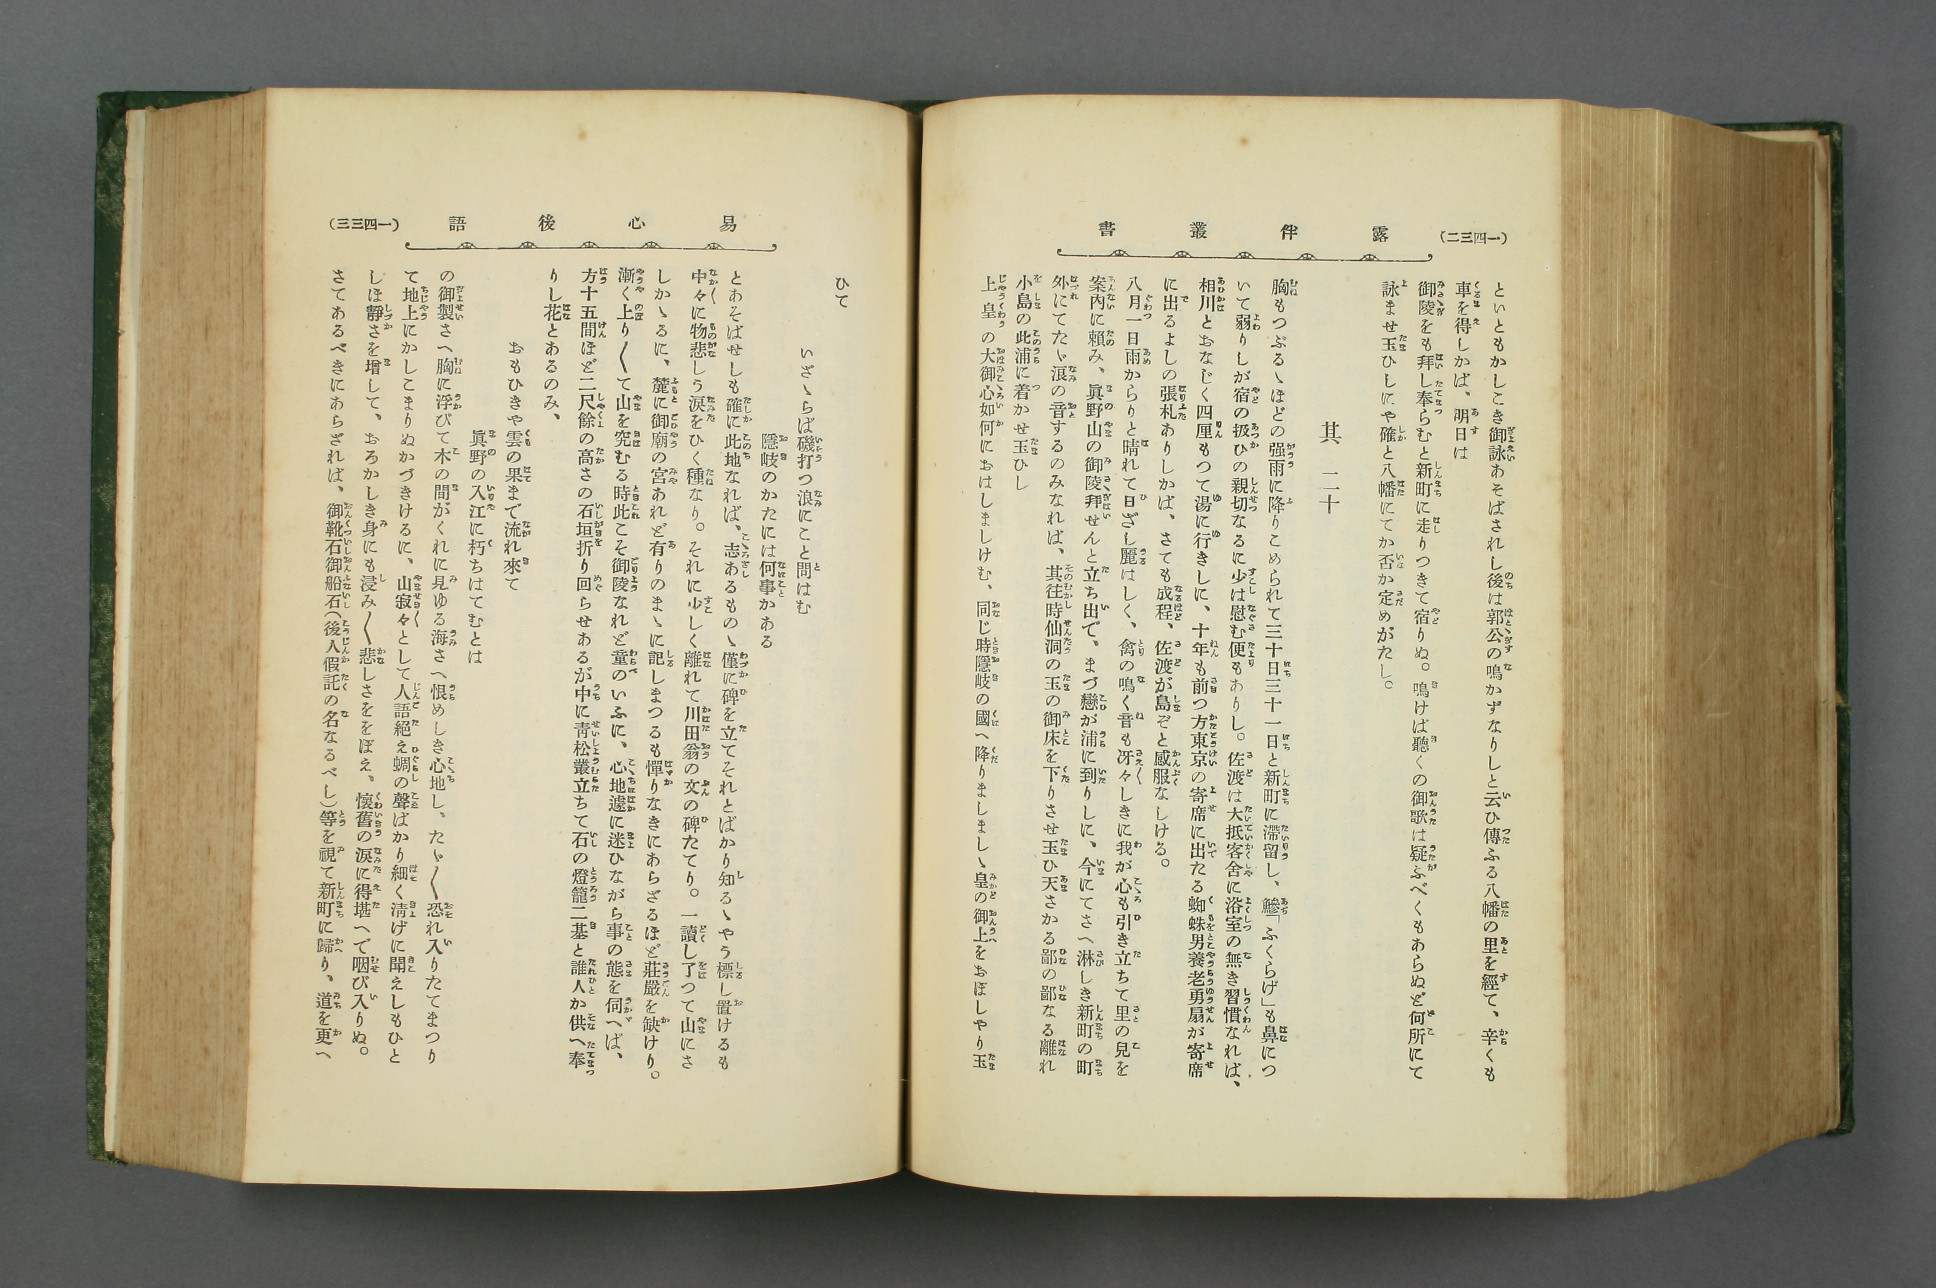 露伴叢書
(一四三二)
といともかしこき御詠あそばされし後は郭公の鳴かずなりしと云ひ傳ふる八幡の里を經て、辛くも
車を得しかば、明日は
御陵をも拜し奉らむと新町に走りつきて宿りぬ。鳴けば聽くの御歌は疑ふべくもあらぬど何所にて
詠ませ玉ひしにや確と八幡にてか否か定めがたし。
其二十
胸もつぶるゝほどの强雨に降りこめられて三十日三十一日と新町に滯留し、鯵「ふくらげ」も鼻につ
いて弱りしが宿の扱ひの親切なるに少は慰む便もありし。佐渡は大抵客舍に浴室の無き習慣なれば、
相川とおなじく四厘もつて湯に行きしに、十年も前つ方東京の寄席に出たる蜘蛛男養老勇扇が寄席
に出るよしの張札ありしかば、さても成程、佐渡が島ぞと感服なしける。
八月一日雨からりと晴れて日ざし麗はしく、禽の鳴く音も冴々しきに我が心も引き立ちて里の兒を
案內に賴み、眞野山の御陵拜せんと立ち出で、まづ戀が浦に到りしに、今にてさへ淋しき新町の町
外にてたゞ浪の音するのみなれば、其往時仙洞の玉の御床を下りさせ玉ひ天さかる鄙の鄙なる離れ
小島の此浦に着かせ玉ひし
上皇の大御心如何におはしましけむ、同じ時隱岐の國へ降りましましゝ皇の御上をおぼしやり玉
易心後語
(一四三三)
ひて
いざゝらば磯打つ浪にこと問はむ
隱岐のかたには何事かある
とあそばせしも確に此地なれば、志あるものゝ僅に碑を立てそれとばかり知るゝやう標し置けるも
中々に物悲しう淚をひく種なり。それに少しく離れて川田翁の文の碑たてり。一讀し了つて山にさ
しかゝるに、麓に御廟の宮あれど有りのまゝに記しまつるも憚りなきにあらざるほど莊嚴を缺けり。
漸く上り〱て山を究むる時此こそ御陵なれど童のいふに、心地遽に迷ひながら事の態を伺へば、
方十五間ほど二尺餘の高さの石垣折り回らせあるが中に靑松叢立ちて石の燈籠二基と誰人か供へ奉
りし花とあるのみ、
おもひきや雲の果まで流れ來て
眞野の入江に朽ちはてむとは
の御製さへ胸に浮びて木の間がくれに見ゆる海さへ恨めしき心地し、たゞ〱恐れ入りたてまつり
て地上にかしこまりぬかづきけるに、山寂々として人語絕え蜩の聲ばかり細く淸げに聞えしもひと
しほ靜さを增して、おろかしき身にも浸み〱悲しさををぼえ。懷舊の淚に得堪へで咽び入りぬ。
さてあるべきにあらざれば、御靴石御船石(後人假託の名なるべし)等を視て新町に歸り、道を更へ